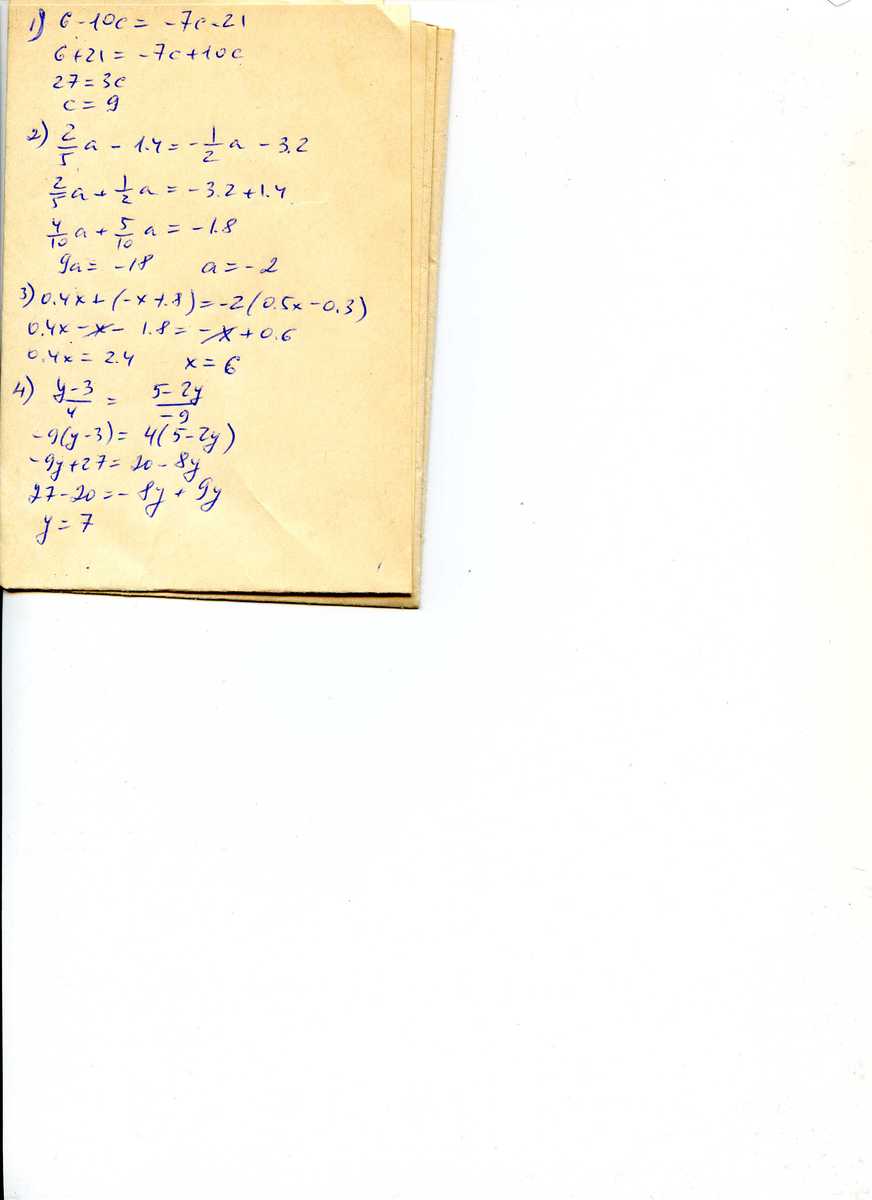 1) 6 - 10c = -7c - 21
6 + 21 = -7c + 10c
27 = 3c
c = 9
2) 2/5 a - 1.4 = -1/2 a - 3.2
2/5 a + 1/2 a = -3.2 + 1.4
4/10 a + 5/10 a = -1.8
9a = -18 a = -2
3) 0.4x + (-x + .8) = -2(0.5x - 0.3)
0.4x - x - 1.8 = -x + 0.6
0.4x = 2.4 x = 6
4) y-3/4 = 5-2y/-9
-9(y-3) = 4(5-2y)
-9y + 27 = 20 - 8y
27 - 20 = -8y + 9y
y = 7